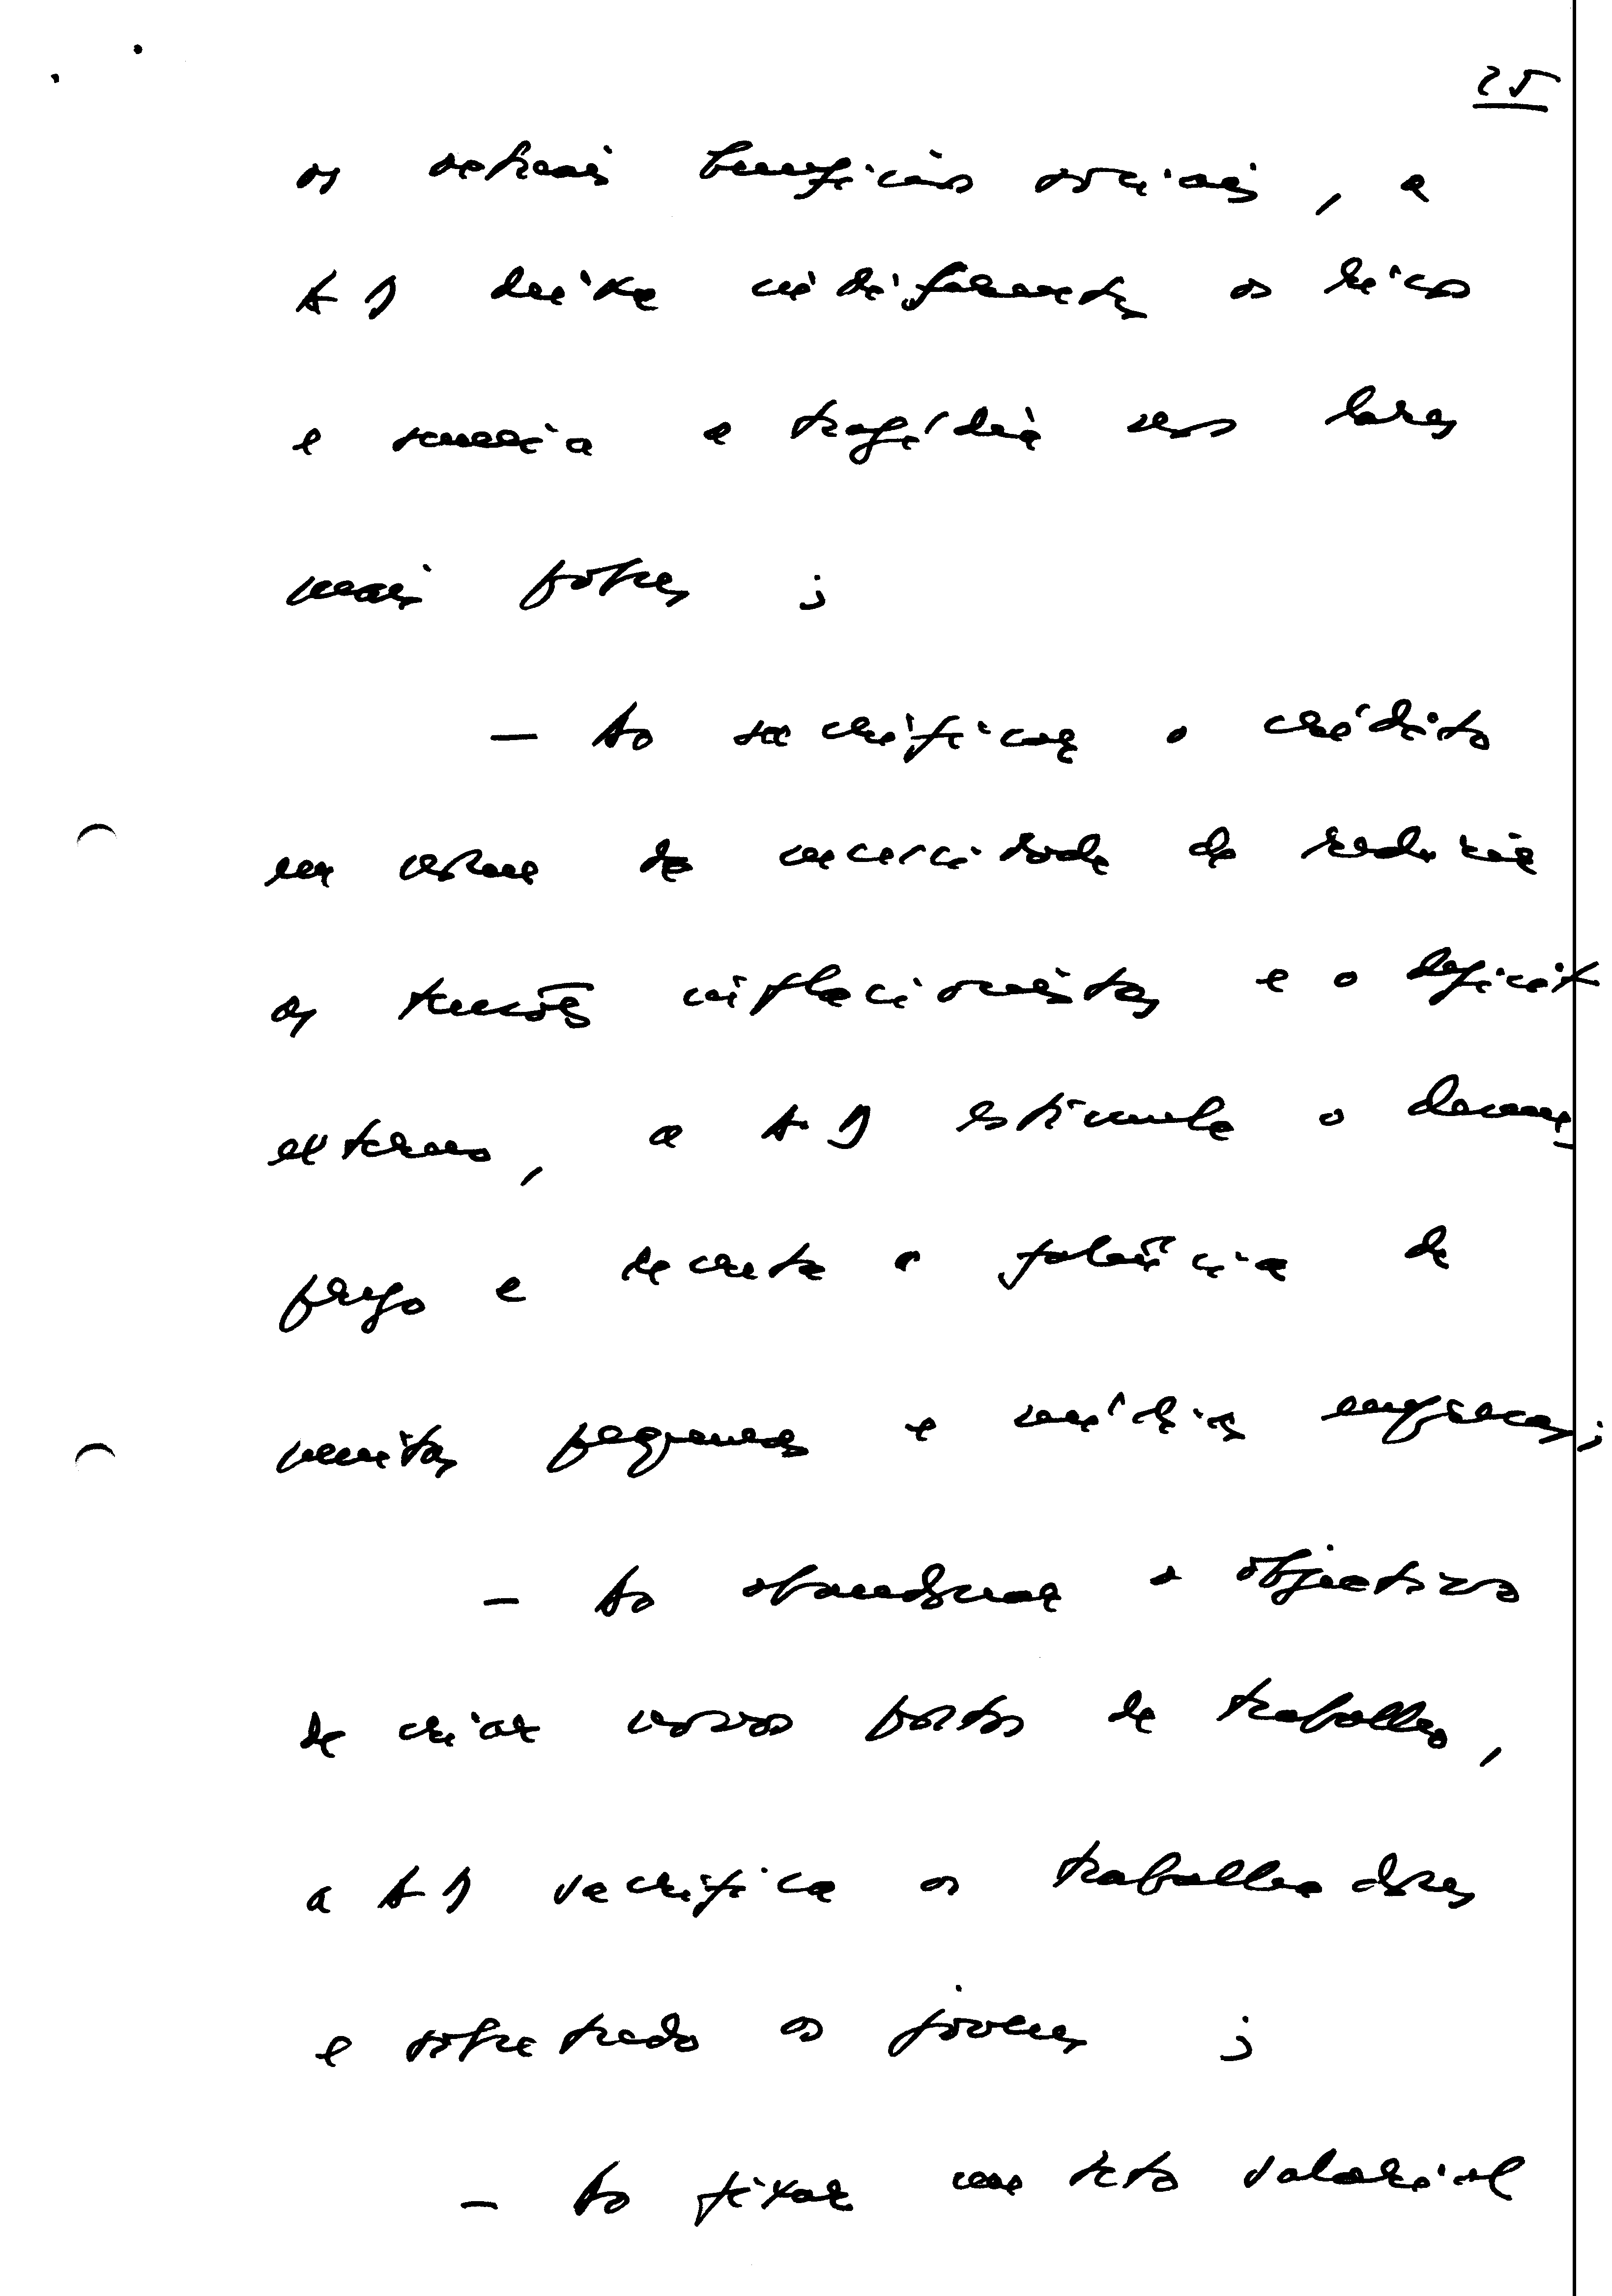 25
os demais benefícios sociais, a
AD deixa indiferentes os ricos
e semeia a tragédia nos lares
mais pobres;
- Ao sacrificar o crédito
em nome da necessidade de reduzir
as tensões inflacionistas e o deficit
externo, a AD estimula o desem
prego e decreta a falência de
muitas pequenas e médias empresas;
- Ao abandonar o objectivo
de criar novos postos de trabalho,
a AD sacrifica os trabalhadores
e sobretudo os jovens;
- Ao fixar um teto salarial